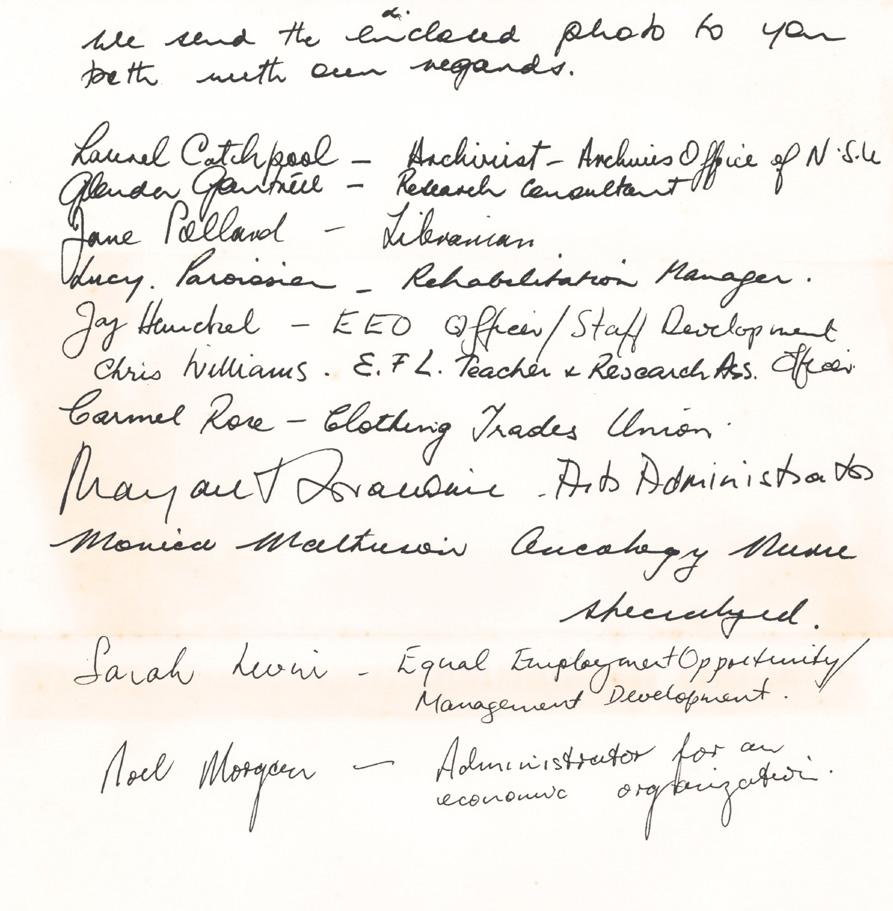 We send the enclosed photo to you
both with our regards.
Laurel Catchpool – Archivist – Archives Office of N.S.W
Glenda – Research Consultant
Jane Pollard – Librarian
Lucy. Paroissien – Rehabilitation Manager.
Joy Henckel – EEO Officer/Staff Development
Chris Williams. E.F L. Teacher & Research Ass. Officer
Carmel Rose – Clothing Trades Union.
Margaret . Arts Administrator
Monica Oncology Nurse
specialized.
Sarah Levin – Equal Employment Opportunity/
Management Development.
Noel Morgan – Administrator for an
economic organization.